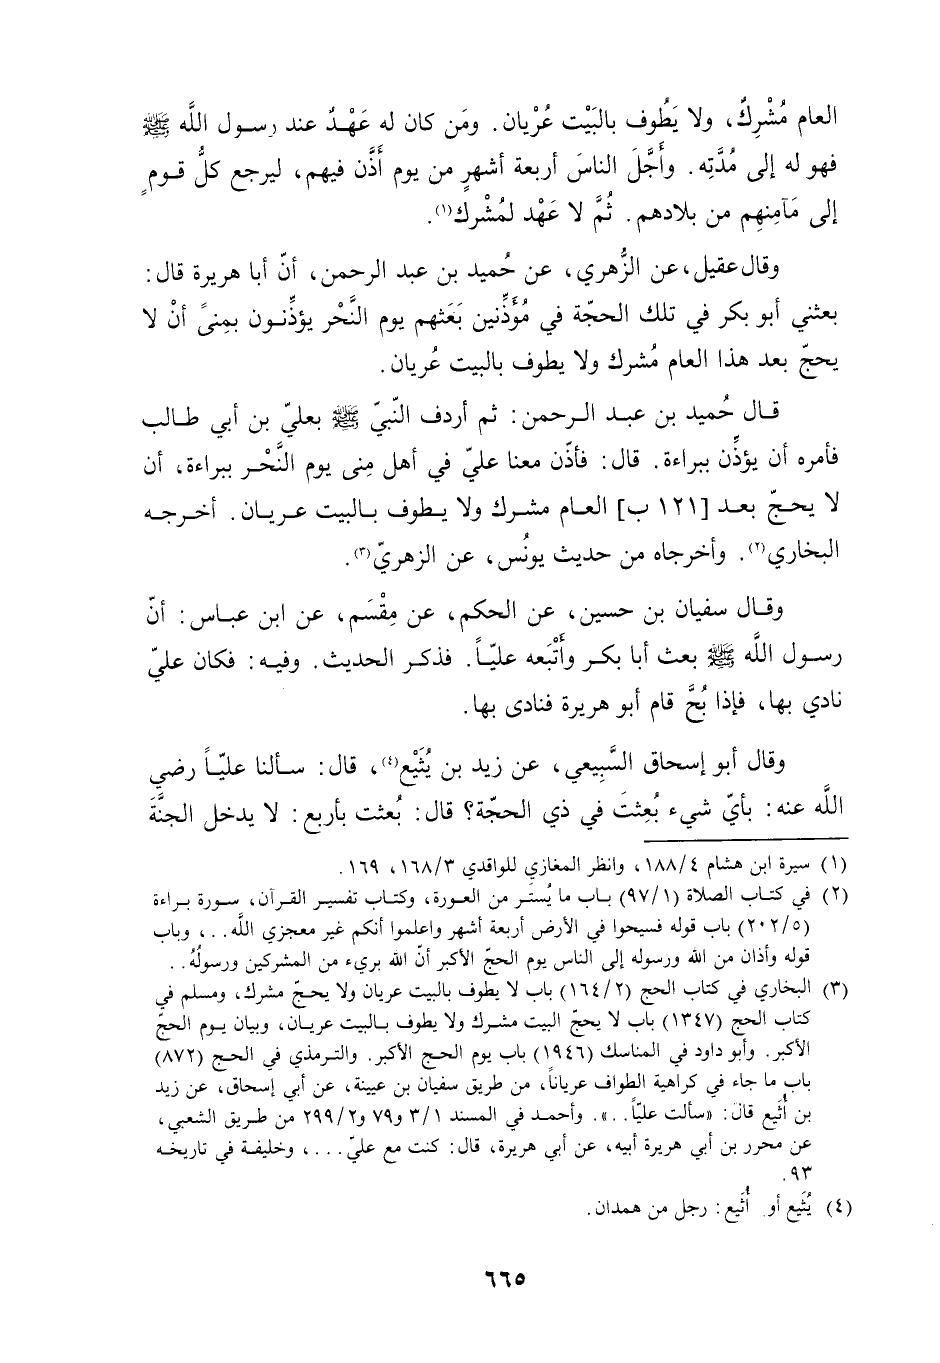 العام مُشْرِكٌ، ولا يَطُوف بالبَيْت عُرْيان. ومَن كان له عَهْدٌ عند رسول اللَّه ﷺ
فهو له إلى مُدَّتِه. وأَجَّلَ الناسَ أربعة أشهرٍ من يوم أَذَّن فيهم، ليرجع كلُّ قومٍ
إلى مَآمِنِهِم من بلادهم. ثُمَّ لا عَهْد لمُشْرك(١).
وقال عقيل، عن الزُّهري، عن حُميد بن عبد الرحمن، أنّ أبا هريرة قال:
بعثني أبو بكر في تلك الحجّة في مُؤَذِّنين بَعَثهم يوم النَّحْر يؤذِّنون بمِنىً أنْ لا
يحجّ بعد هذا العام مُشرك ولا يطوف بالبيت عُريان.
قال حُميد بن عبد الرحمن: ثم أردف النّبيّ ﷺ بعليّ بن أبي طالب
فأمره أن يؤذِّن ببراءة. قال: فأذّن معنا عليّ في أهل مِنى يوم النَّحْر ببراءة، أن
لا يحجّ بعد [١٢١ ب] العام مشرك ولا يطوف بالبيت عريان. أخرجه
البخاري(٢). وأخرجاه من حديث يونُس، عن الزهريّ(٣).
وقال سفيان بن حسين، عن الحكم، عن مِقْسَم، عن ابن عباس: أنّ
رسول اللَّه ﷺ بعث أبا بكر وأَتْبَعه عليّاً. فذكر الحديث. وفيه: فكان عليّ
نادي بها، فإذا بُحَّ قام أبو هريرة فنادى بها.
وقال أبو إسحاق السَّبِيعي، عن زيد بن يُثَيْع(٤)، قال: سألنا عليّاً رضي
اللَّه عنه: بأيّ شيء بُعِثتَ في ذي الحجّة؟ قال: بُعثت بأربع: لا يدخل الجنَّةَ
(١) سيرة ابن هشام ١٨٨/٤، وانظر المغازي للواقدي ١٦٨/٣، ١٦٩.
(٢) في كتاب الصلاة (٩٧/١) باب ما يُستَر من العورة، وكتاب تفسير القرآن، سورة براءة
(٢٠٢/٥) باب قوله فسيحوا في الأرض أربعة أشهر واعلموا أنكم غير معجزي اللَّه..، وباب
قوله وأذان من الله ورسوله إلى الناس يوم الحجّ الأكبر أنّ الله بريء من المشركين ورسولُهُ..
(٣) البخاري في كتاب الحج (١٦٤/٢) باب لا يطوف بالبيت عريان ولا يحجّ مشرك، ومسلم في
كتاب الحج (١٣٤٧) باب لا يحجّ البيت مشرك ولا يطوف بالبيت عريان، وبيان يوم الحجّ
الأكبر. وأبو داود في المناسك (١٩٤٦) باب يوم الحج الأكبر. والترمذي في الحج (٨٧٢)
باب ما جاء في كراهية الطواف عرياناً، من طريق سفيان بن عيينة، عن أبي إسحاق، عن زيد
بن أُثَيع قال: «سألت عليّاً..». وأحمد في المسند ٣/١ و٧٩ و٢٩٩/٢ من طريق الشعبي،
عن محرر بن أبي هريرة أبيه، عن أبي هريرة، قال: كنت مع عليّ...، وخليفة في تاريخه
٩٣.
(٤) يُثَيع أو أُثَيع: رجل من همدان.
٦٦٥